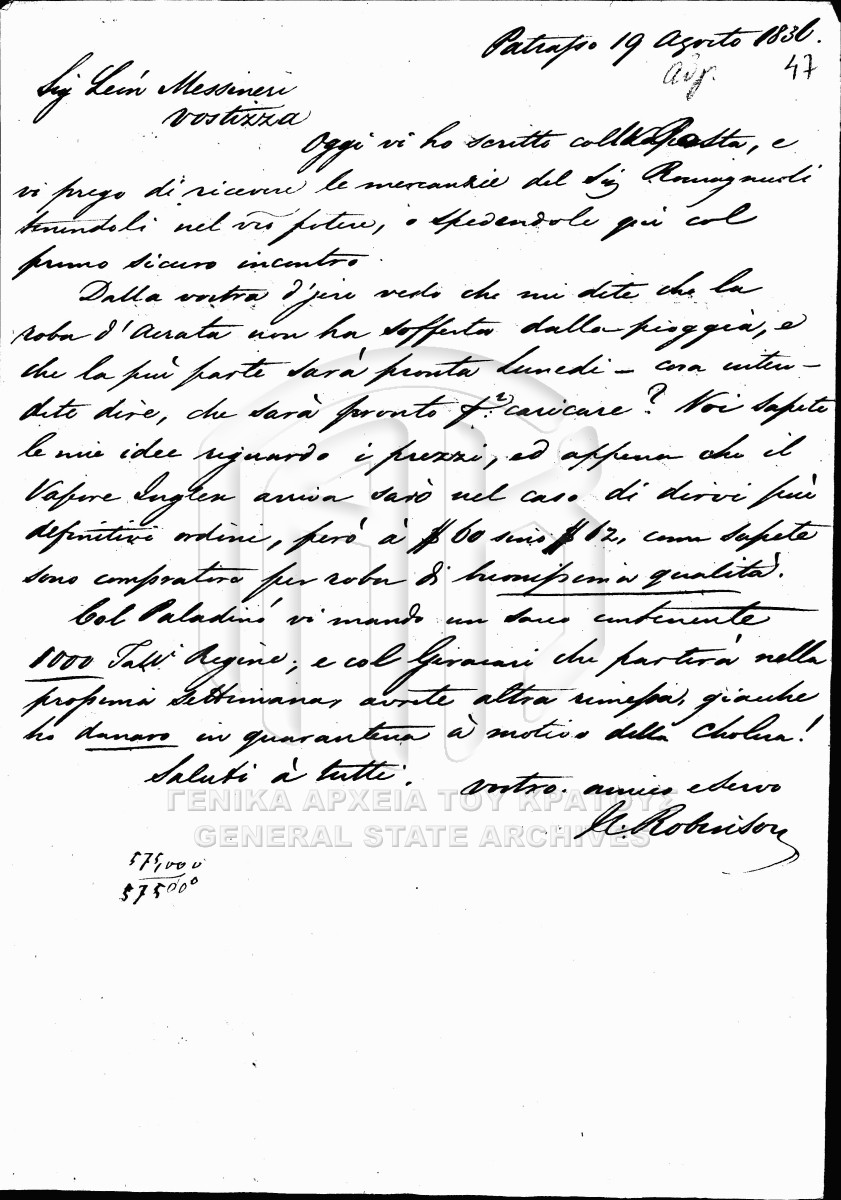 Patrasso 19 Agosto 1836.
αυγ. 47
Sig Leōn Messineri
Vostizza
Oggi vi ho scritto colla Posta, e
vi prego di ricevere le mercanzie del Sig Romagnuoli
tenendoli nel vro potere, o spedendole qui col
primo sicuro incontro.
Dalla vostra d'jere vedo che mi dite che la
roba d'Acrata non ha sofferta dalla pioggia, e
che la più parte sarà pronta Lunedi - cosa inten-
dete dire, che sarà pronto pr caricare? Voi sapete
le mie idee riguardo i prezzi, ed appena che il
Vapore Inglese arriva sarò nel caso di dirvi più
definitivi ordini, però à $ 60 sino $ 62, come sapete
sono compratore per roba di buonissima qualità.
Col Paladinó vi mando un sacco contenente
1000 Tallri Regine; e col Geracari che partirà nella
prossima Settimana, avrete altra rimessa, giacche
ho danaro in quarantena à motivo della Cholera!
Saluti à tutti.
vostro. amico e servo
Robinson
575,000
575000
ΓΕΝΙΚΑ ΑΡΧΕΙΑ ΤΟΥ ΚΡΑΤΟΥΣ
GENERAL STATE ARCHIVES